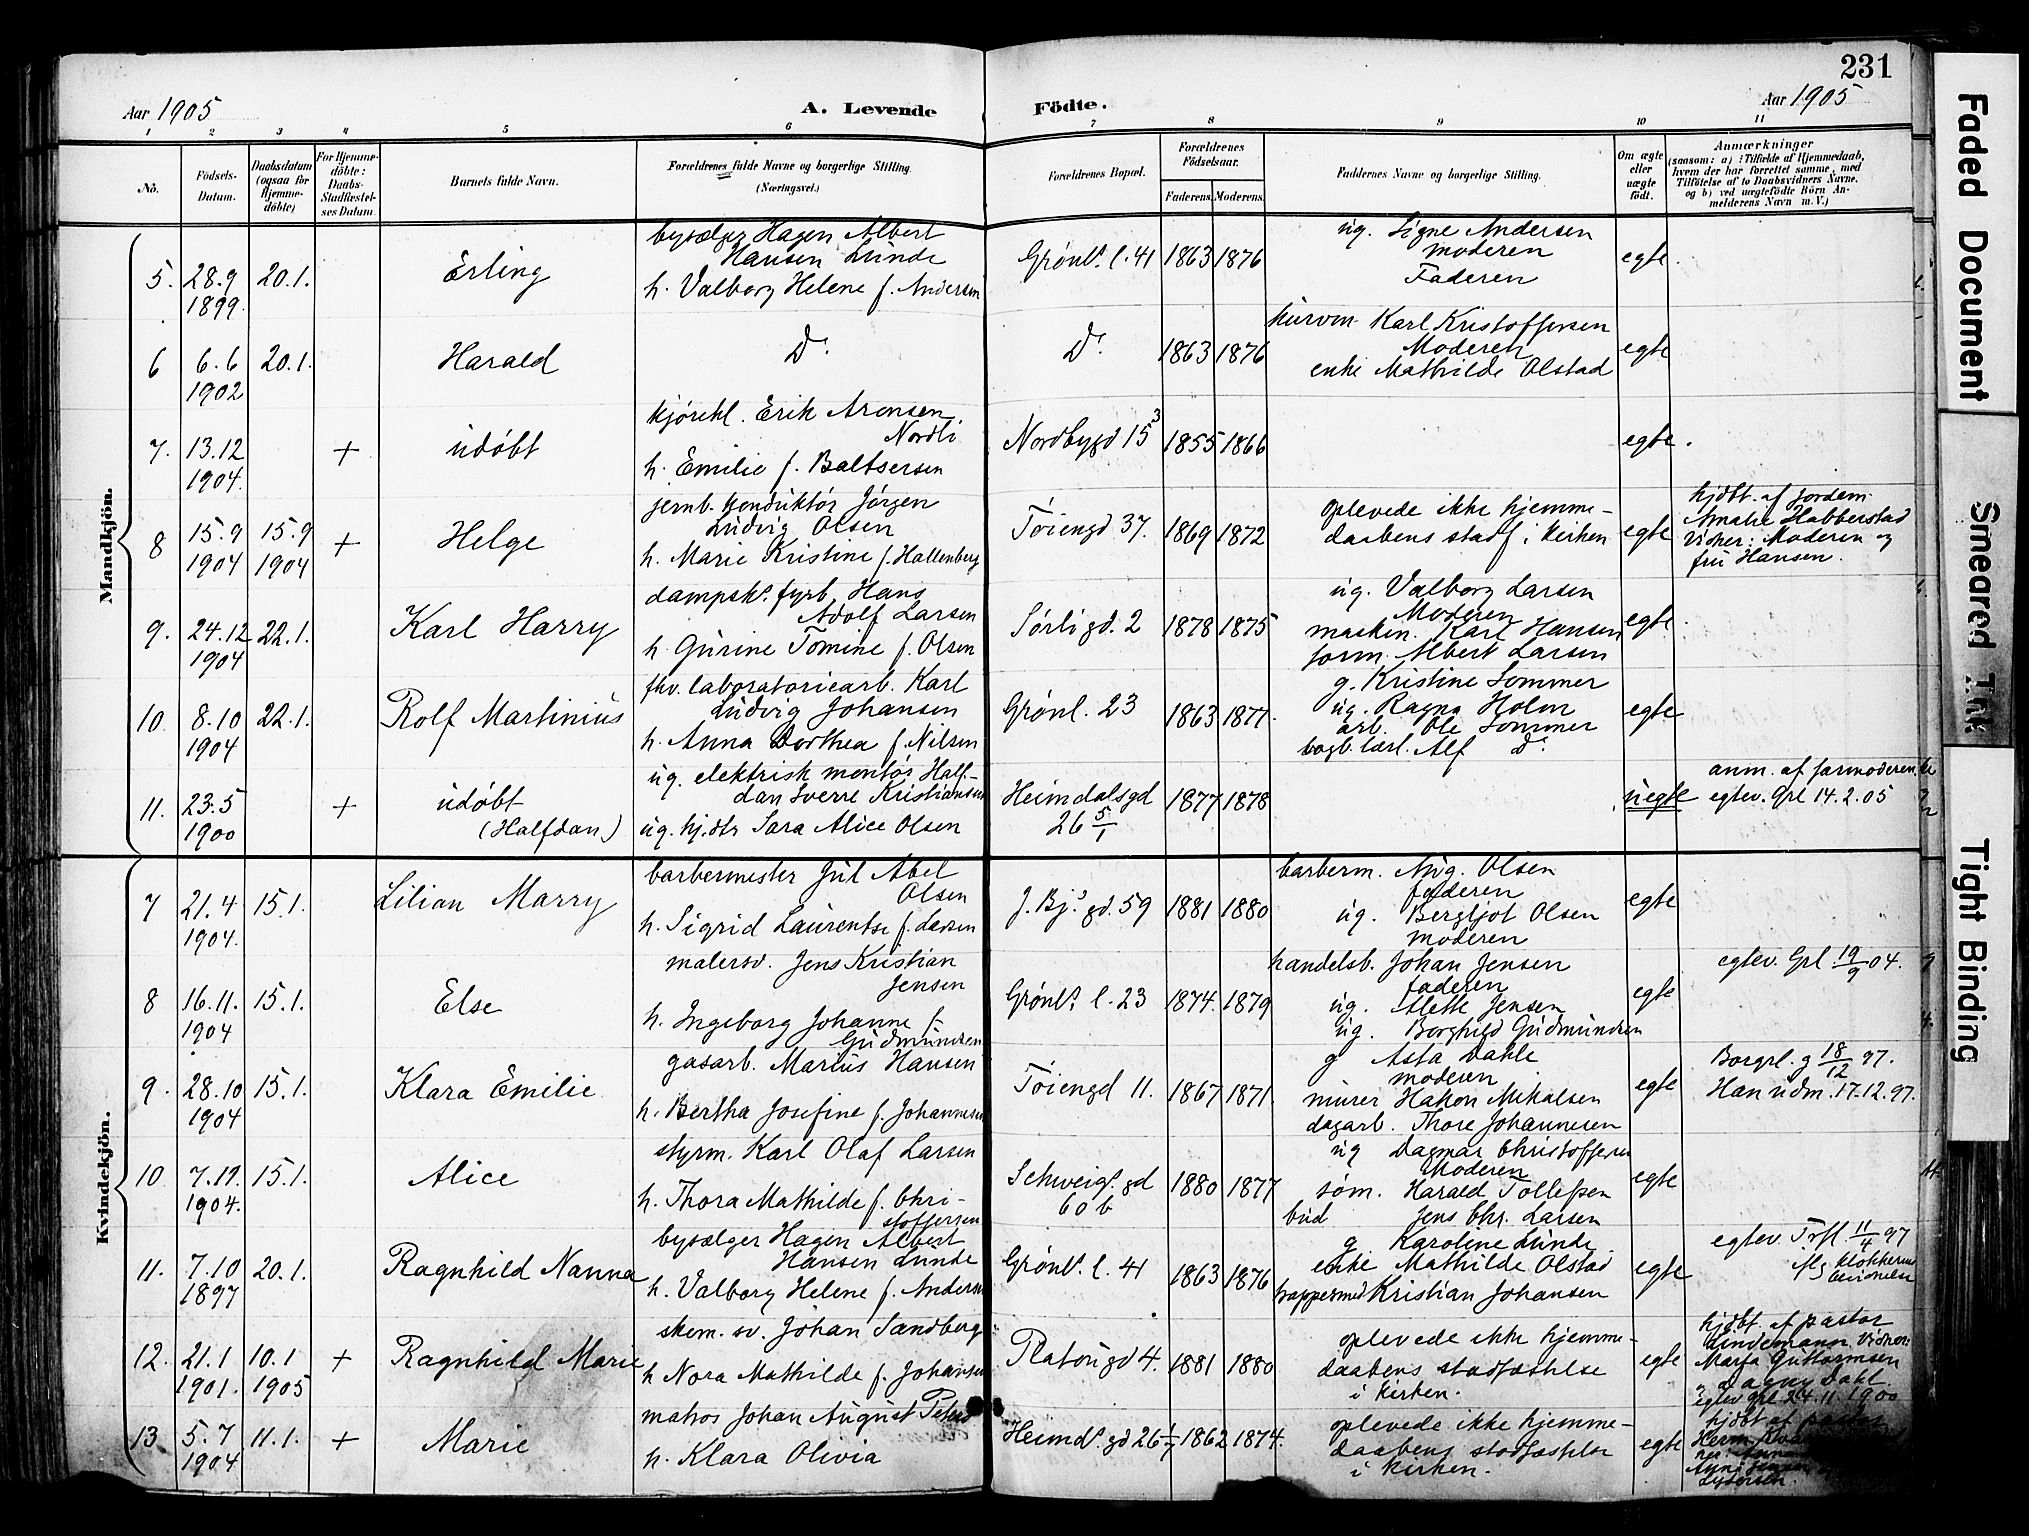 231
Aar 1905 A. Levende Födte. Aar 1905
1 2 3 4 5 6 7 8 9 10 11
No.
Födsels-Datum.
Daabsdatum (ogsaa for Hjemme-döbte)
For Hjemme-döbte: Daabs-Stadfæstel-ses Datum.
Barnets fulde Navn.
Forældrenes fulde Navne og borgerlige Stilling. (Næringsvei.)
Forældrenes Bopæl.
Forældrenes Födselsaar.
Faderens. Moderens.
Faddernes Navne og borgerlige Stilling.
Om ægte eller uægte födt.
Anmærkninger
(saasom: a) i Tilfælde af Hjemmedaab,
hvem der har forrettet samme, med
Tilföielse af to Daabsvidners Navne,
og b) ved uægtefödte Börn An-
melderens Navn m. V.)
Mandkjön.
5. 28.9 1899. 20.1. Erling
bysælger Hagen Albert
Hansen Lunde
h. Valborg Helene f. Andersen
Grønls. l. 41 1863 1876
ug. Signe Andersen
moderen
Faderen
egte.
6 6.6 1902 20.1. Harald Do. Do. 1863 1876
Karl Kristoffersen
Moderen
enke Mathilde Olstad
egte
7. 13.12 1904. + udøbt
kjørekl. Erik Arensen
Nordli
h. Emilie f. Baltsersen
Nordbygd 15 3 1855 1866 egte.
8 15.9 1904 15.9 1904 + Helge
jernb. konduktør Jørgen
Ludvig Olsen
h. Marie Kristine f. Hallenberg
Tøiengd 37. 1869 1872
oplevede ikke hjemme-
daabens stadf. i kirken
egte
hjdbt. af jordem.
Amalie Habberstad
Vidner: Moderen og
fru Hansen.
9. 24.12 1904 22.1. Karl Harry
dampsks. fyrb. Hans
Adolf Larsen
h. Gurine Tomine f. Olsen
Sørligd. 2 1878 1875
ug. Valborg Larsen
Moderen
maskin. Karl Hansen
form. Albert Larsen
egte.
10. 8.10 1904 22.1. Rolf Martinius
fhv. laboratoriearb. Karl
Ludvig Johansen
h. Anna Dorthea f. Nilsen
Grønl. 23 1863 1877.
g. Kristine Sommer
ug. Ragna Holm
arb. Ole Sommer
bogb. lærl. Alf Do.
egte
11. 23.5 1900 + udøbt (Halfdan)
ug. elektrisk montør Half-
dan Sverre Kristiansen
ug. hj.dtr Sara Alice Olsen
Heimdalsgd
26 5/1
1877 1878 uegte
anm. af farmoderen.
egtev. Grl 14.2.05
Kvindekjön.
7 21.4 1904. 15.1. Lilian Marry
barbermester Jul Abel
Olsen
h. Sigrid Laurentse f. Larsen
J. Bj.s gd. 59 1881 1880
barberm. Aug. Olsen
faderen
ug. Bergljot Olsen
moderen
egte
8 16.11. 1904 15.1. Else
malersv. Jens Kristian
Jensen
h. Ingeborg Johanne f.
Gudmundsen
Grønls. l. 23 1874. 1879
handelsb. Johan Jensen
faderen
ug. Alette Jensen
ug. Borghild Gudmundsen
egte
egtev. Grl. 19/9 04.
9. 28.10 1904 15.1. Klara Emilie
gasarb. Marius Hansen
h. Bertha Josefine f. Johannesen
Tøiengd 11. 1867 1871
g Asta Dahle
moderen
murer Hakon Mikalsen
dagarb. Thore Johannesen
egte
Borgrl. g 18/12 97.
Han udm. 17.12.97.
10 7.11 1904. 15.1. Alice
styrm. Karl Olaf Larsen
h. Thora Mathilde f. Chri-
stoffersen
Schweigs. gd
60 b
1880 1877
ug Dagmar Christoffersen
Moderen
søm. Harald Tollefsen
bud Jens Chr. Larsen
egte
11. 7.10 1897 20.1. Ragnhild Nanna
bysælger Hagen Albert
Hansen Lunde
h. Valborg Helene f. Andersen
Grønls. l. 41 1863 1876
g. Karoline Lunde
enke Mathilde Olstad
Kristian Johansen
egte
egtev. Trfl. 11/4 97
12. 21.1 1901. 10.1 1905 + Ragnhild Marie
skom. sv. Johan Sandberg
h Nora Mathilde f. Johansen
Platougd 4. 1881 1880
oplevede ikke hjemme-
daabens stadfæstelse
i kirken.
egte
hjdbt. af pastor
Lindemann. Vidner:
Marfa Guttormsen
" Dagny Dahl.
Egtev. grl 24.11.1900
13 5.7 1904 11.1. + Marie
matros Johan August
h. Klara Olivia
Heimds. gd 26 1/7 1862 1874.
oplevede ikke hjemme-
daabens stadfæstelse
i kirken.
egte
hjdbt af pastor
Faded Document
Smeared Ink
Tight Binding